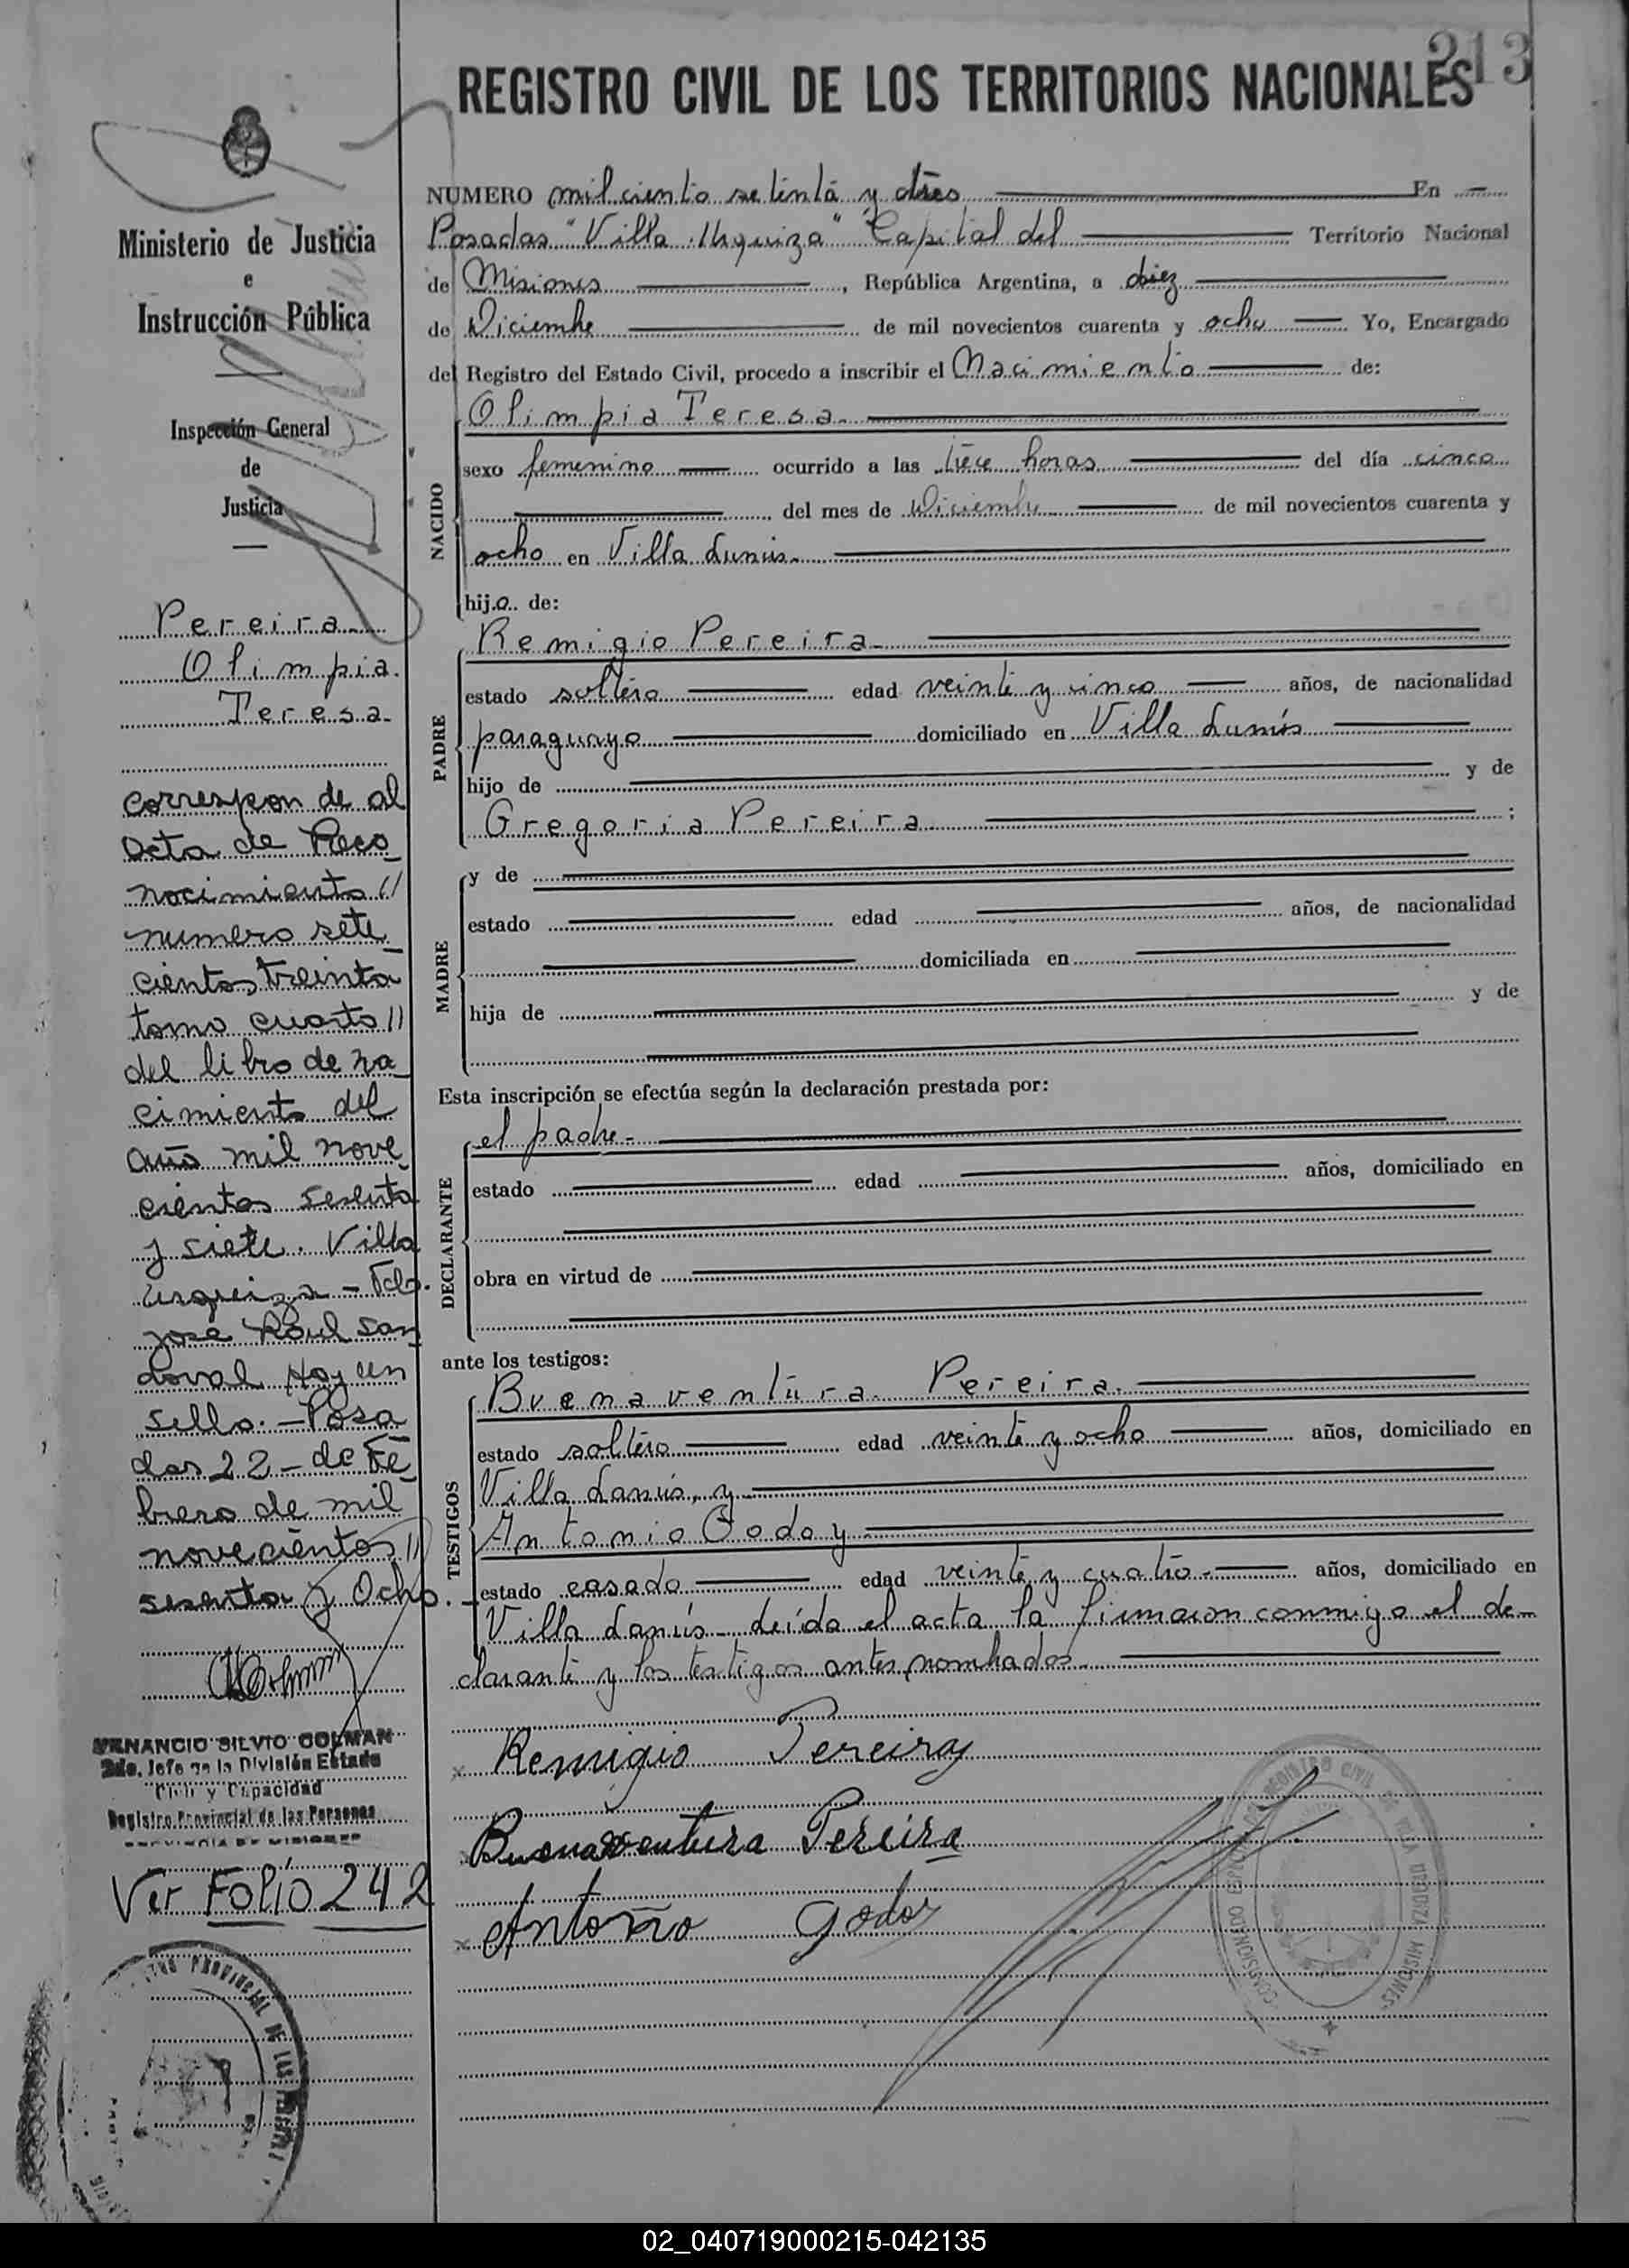 213
REGISTRO CIVIL DE LOS TERRITORIOS NACIONALES
Ministerio de Justicia
e
Instrucción Pública
Inspección General
de
Justicia
Pereira
Olimpia
Teresa
corresponde al
acta de Reco
nocimiento //
numero sete
cientos treinta
tomo cuarto //
del libro de na
cimiento del
año mil nove
cientos sesenta
y siete. Villa
urquiza - Fdo.
jose Raul San
doval Hay un
sello. - Posa
das 22 - de Fe
brero de mil
novecientos //
sesenta y Ocho. -
VENANCIO SILVIO COLMAN
2do. Jefe de la División Estado
Civil y Capacidad
Registro Provincial de las Personas
PROVINCIA DE MISIONES
Ver FOLIO 242
NUMERO mil ciento setenta y En -
Posadas "Villa Urquiza" Capital del Territorio Nacional
de Misiones, República Argentina, a diez
de Diciembre de mil novecientos cuarenta y ocho Yo, Encargado
del Registro del Estado Civil, procedo a inscribir el Nacimiento de:
Olimpia Teresa
NACIDO
sexo femenino ocurrido a las trece horas del día cinco
, del mes de Diciembre de mil novecientos cuarenta y
ocho en Villa Lanús
hija de:
Remigio Pereira
PADRE
estado soltero edad veinte y cinco años, de nacionalidad
paraguayo domiciliado en Villa Lanús
hijo de y de
Gregoria Pereira ;
MADRE
y de
estado edad años, de nacionalidad
domiciliada en
hija de y de
Esta inscripción se efectúa según la declaración prestada por:
el padre -
DECLARANTE
estado edad años, domiciliado en
obra en virtud de
ante los testigos:
Buenaventura Pereira
TESTIGOS
estado soltero edad veinte y ocho años, domiciliado en
Villa Lanús, y
Antonio Godoy
estado casado edad veinte y cuatro años, domiciliado en
Villa Lanús - leída el acta la firmaron conmigo el de-
clarante y los testigos antes nombrados
x Remigio Pereira
x Buenaventura Pereira
x Antonio Godoy
REGISTRO CIVIL DE VILLA URQUIZA MISIONES
PROVINCIAL DE LAS
02_040719000215-042135